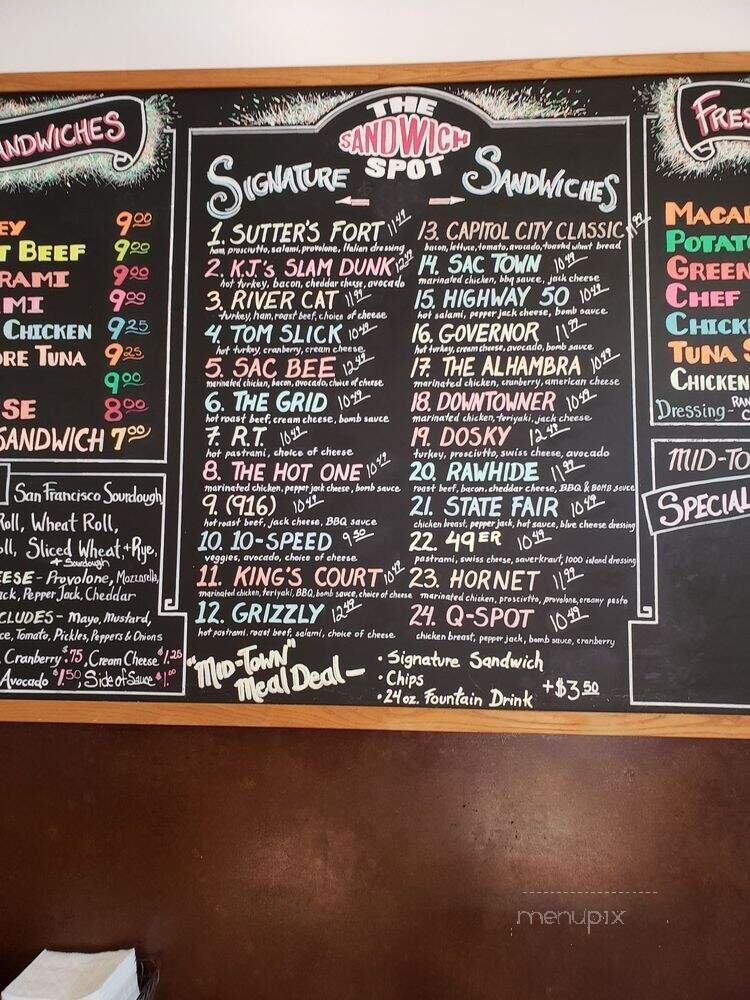 NDWICHES
EY 9.00
T BEEF 9.00
RAMI 9.00
MI 9.00
CHICKEN 9.25
ORE TUNA 9.25
9.00
SE 8.00
SANDWICH 7.00
San Francisco Sourdough,
Roll, Wheat Roll,
oll, Sliced Wheat, + Rye,
+ Sourdough
EESE - Provolone, Mozzarella,
ack, Pepper Jack, Cheddar
CLUDES - Mayo, Mustard,
ce, Tomato, Pickles, Peppers & Onions
Cranberry $.75, Cream Cheese $1.25
Avocado $1.50, Side of Sauce $1.00
THE
SANDWICH
SPOT
SIGNATURE SANDWICHES
1. SUTTER'S FORT 11.49
ham, prosciutto, salami, provolone, Italian dressing
2. K.J.'s SLAM DUNK
hot turkey, bacon, cheddar cheese, avocado
3. RIVER CAT 11.99
turkey, ham, roast beef, choice of cheese
4. TOM SLICK 10.49
hot turkey, cranberry, cream cheese
5. SAC BEE 12.49
marinated chicken, bacon, avocado, choice of cheese
6. THE GRID 10.49
hot roast beef, cream cheese, bomb sauce
7. R.T. 10.49
hot pastrami, choice of cheese
8. THE HOT ONE 10.49
marinated chicken, pepper jack cheese, bomb sauce
9. (916) 10.49
hot roast beef, jack cheese, BBQ sauce
10. 10-SPEED 9.50
veggies, avocado, choice of cheese
11. KING'S COURT 10.49
marinated chicken, teriyaki, BBQ, bomb sauce, choice of cheese
12. GRIZZLY 12.49
hot pastrami, roast beef, salami, choice of cheese
13. CAPITOL CITY CLASSIC 11.99
bacon, lettuce, tomato, avocado, toasted wheat bread
14. SAC TOWN 10.49
marinated chicken, bbq sauce, jack cheese
15. HIGHWAY 50 10.49
hot salami, pepper jack cheese, bomb sauce
16. GOVERNOR 11.99
hot turkey, cream cheese, avocado, bomb sauce
17. THE ALHAMBRA 10.49
marinated chicken, cranberry, american cheese
18. DOWNTOWNER 10.49
marinated chicken, teriyaki, jack cheese
19. DOSKY 12.49
turkey, prosciutto, swiss cheese, avocado
20. RAWHIDE 11.99
roast beef, bacon, cheddar cheese, BBQ & BOMB sauce
21. STATE FAIR 10.49
chicken breast, pepper jack, hot sauce, blue cheese dressing
22. 49ER 10.49
pastrami, swiss cheese, sauerkraut, 1000 island dressing
23. HORNET 11.99
marinated chicken, prosciutto, provolone, creamy pesto
24. Q-SPOT 10.49
chicken breast, pepper jack, bomb sauce, cranberry
"MID-TOWN"
Meal Deal -
• Signature Sandwich
• Chips
• 24 oz. Fountain Drink +$3.50
FRES
MACAR
POTATO
GREEN
CHEF
CHICK
TUNA S
CHICKEN
RAN
Dressing -
MID-TO
SPECIAL
menupix